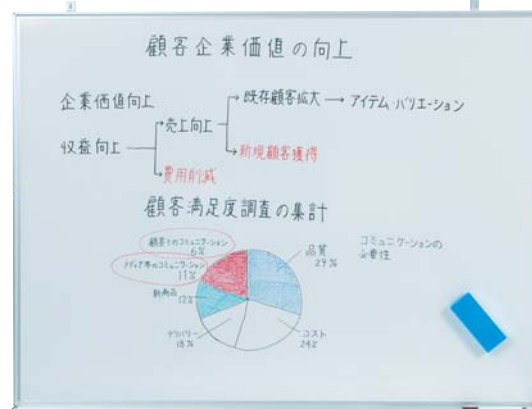 顧客企業価値の向上
企業価値向上
収益向上
売上向上
費用削減
既存顧客拡大
アイテム・バリエーション
新規顧客獲得
顧客満足度調査の集計
顧客とのコミュニケーション
6%
メディア等のコミュニケーション
11%
新商品
12%
デリバリー
18%
コスト
24%
品質
29%
コミュニケーションの
必要性